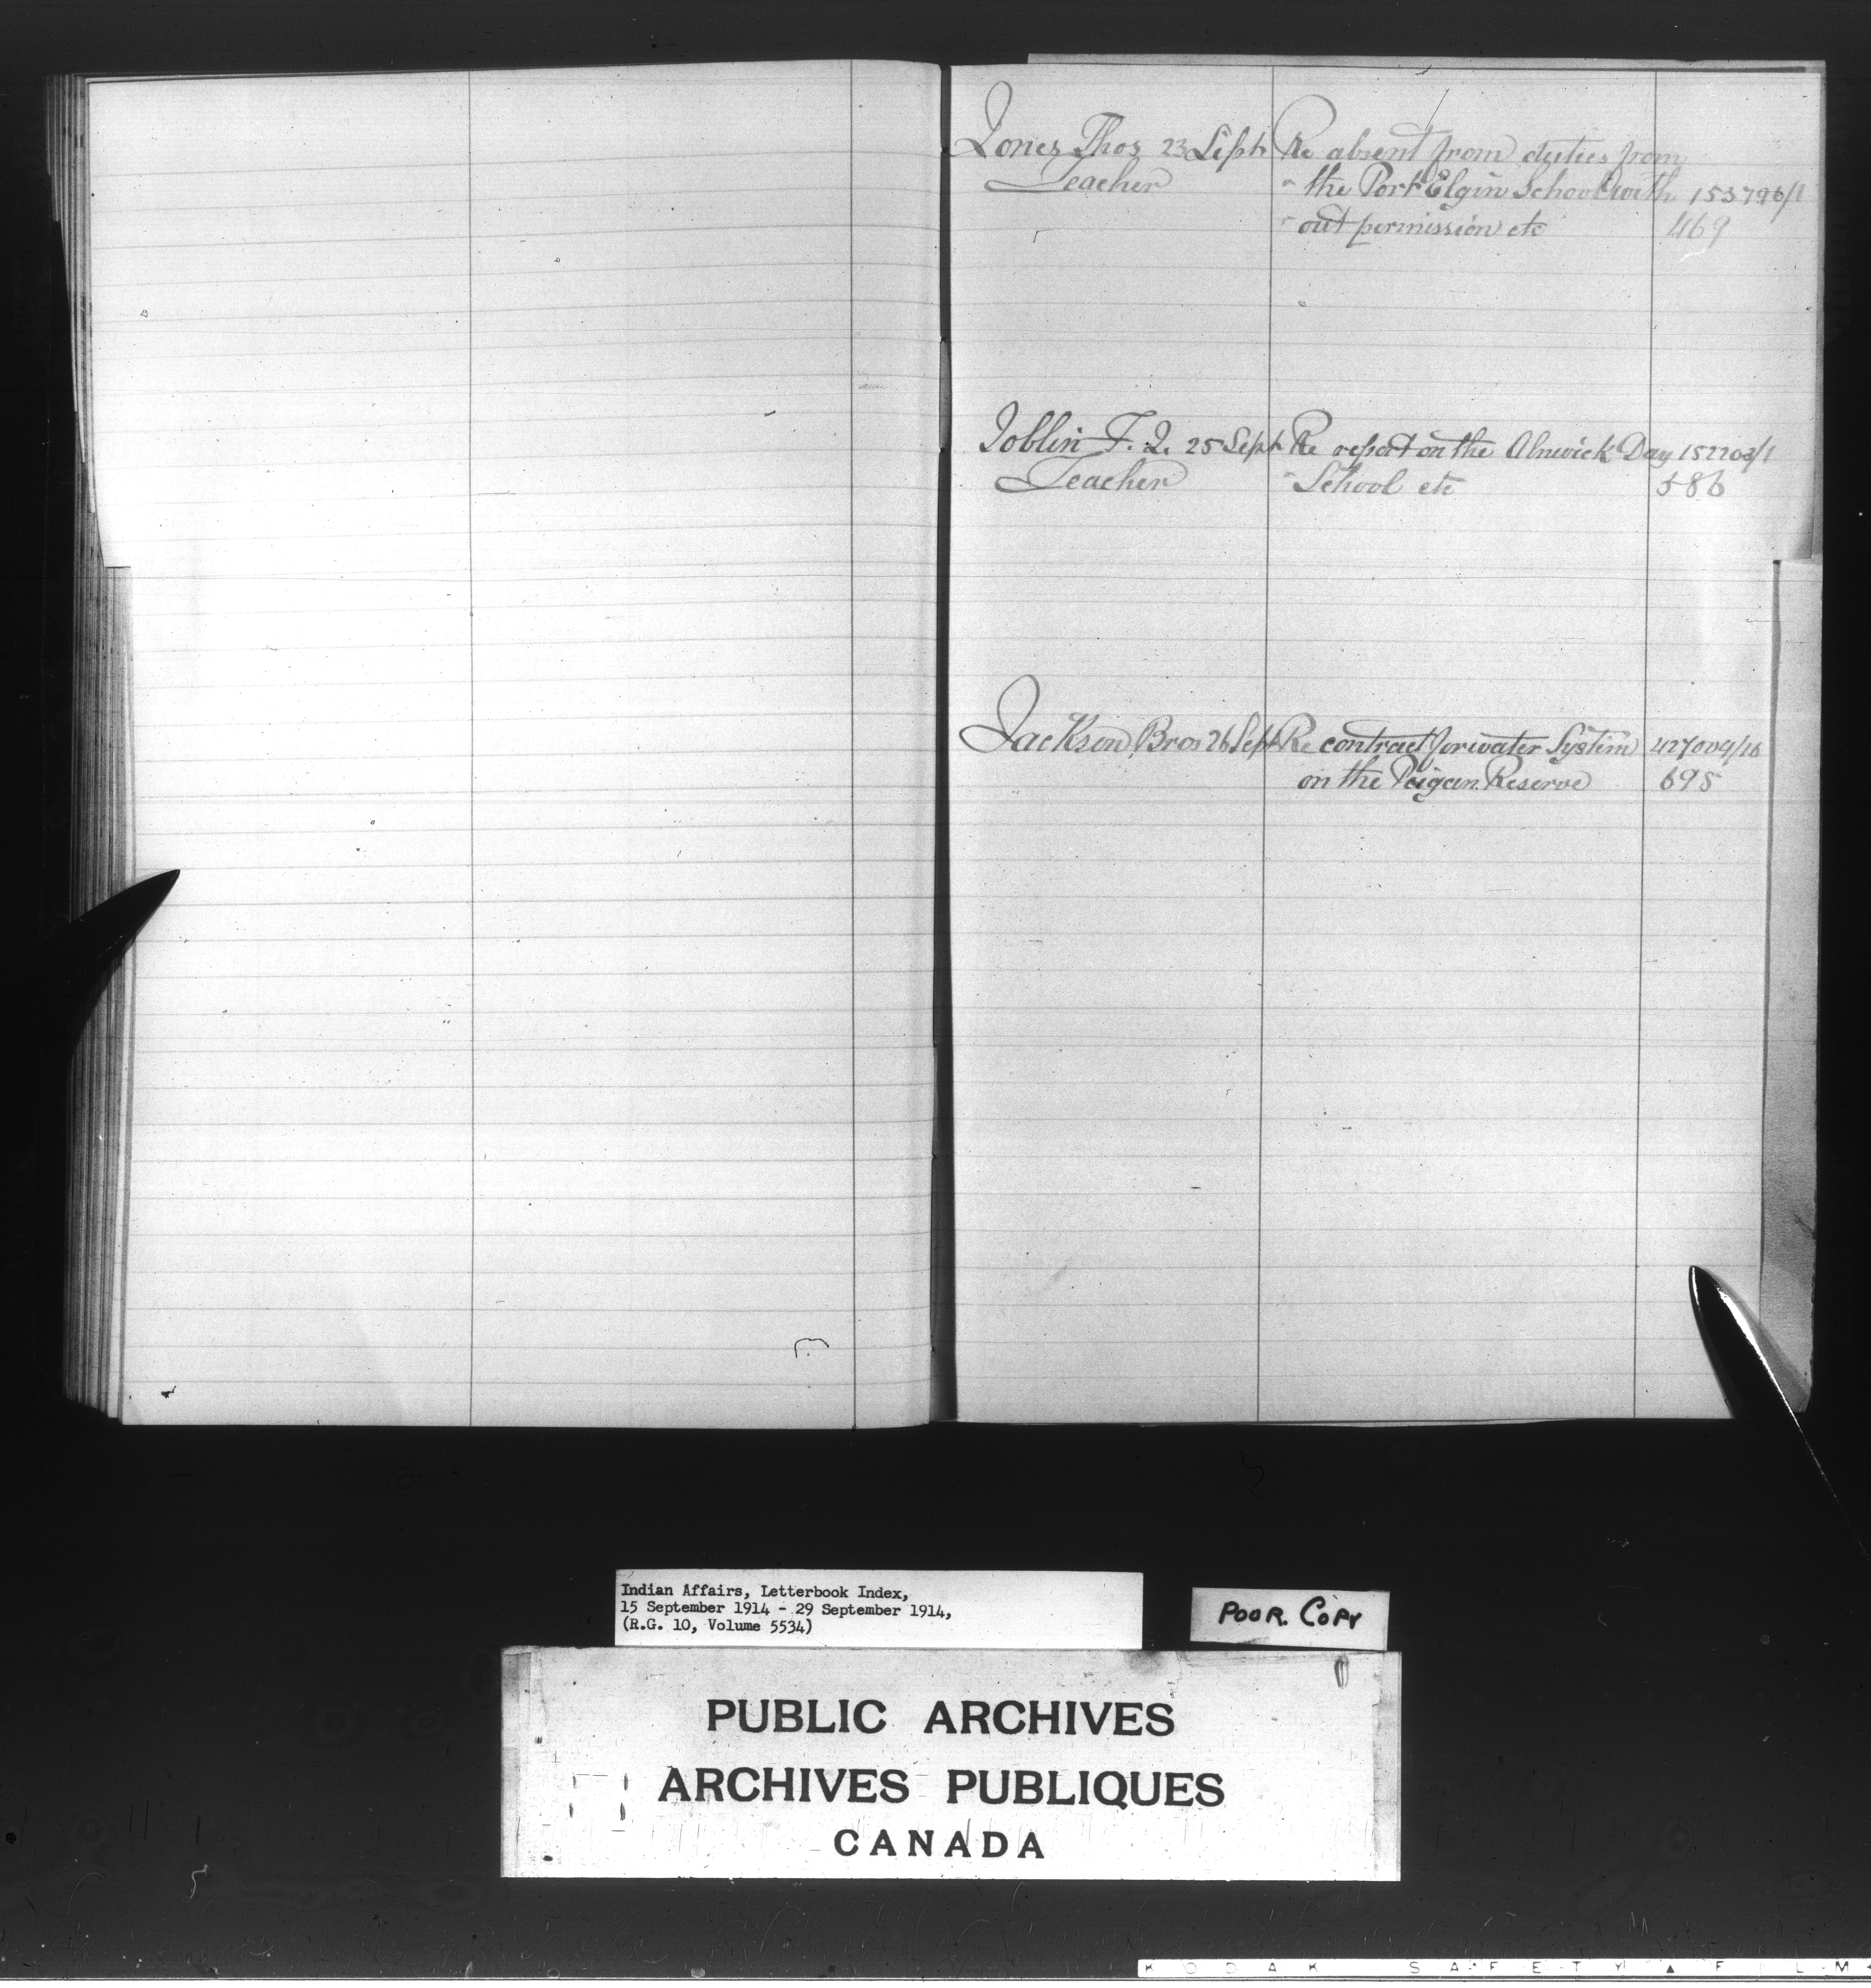 Jones Thos 23 Sept Re absent from duties from
Teacher " the Port Elgin School with 153796/1
" out permission etc 469
Joblin F. J. 25 Sept Re report on the Alnwick Day 152203/1
Teacher " School etc 586
Jackson Bros 26 Sept Re contract for water System 427004/16
on the Peigan Reserve 695
Indian Affairs, Letterbook Index,
15 September 1914 - 29 September 1914,
(R.G. 10, Volume 5534)
POOR. COPY
PUBLIC ARCHIVES
ARCHIVES PUBLIQUES
CANADA
KODAK SAFETY ▲ FILM